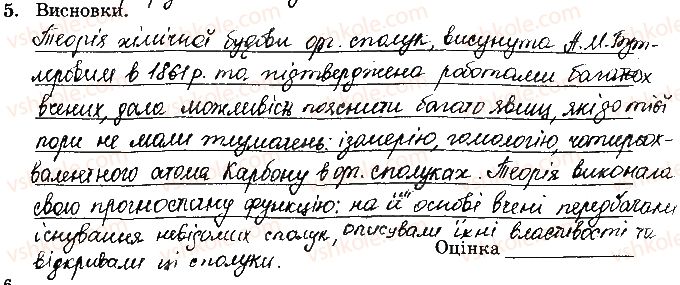 5. Висновки.
Теорія хімічної будови орг. сполук, висунута А.М.Бут-
леровим в 1861р. та підтверджена работами багатох
вчених, дала можливість пояснити багато явищ, які до тієї
пори не мали тлумачень: ізомерію, гомологію, чотирьох-
валентного атома Карбону в орг. сполуках. Теорія виконала
свою прогностичну функцію: на її основі вчені передбачали
існування невідомих сполук, описували їхні властивості та
відкривали ці сполуки.
Оцінка
6